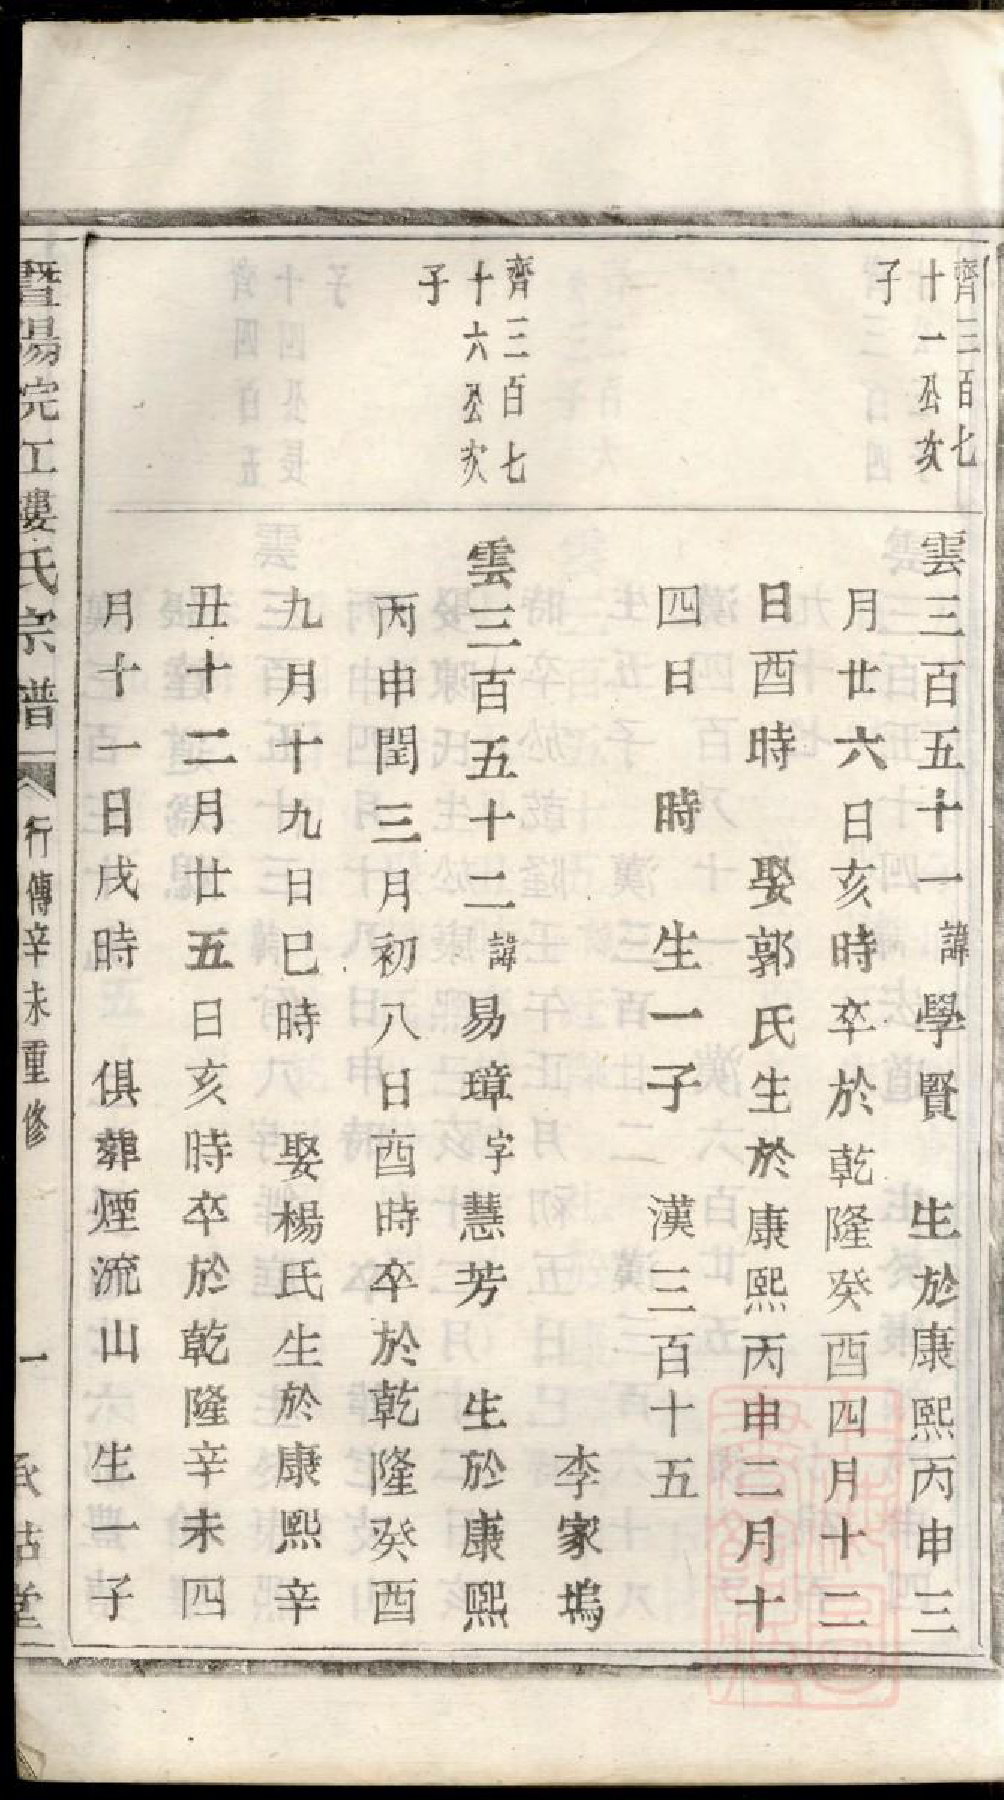 齊三百七
十一公次
子
雲三百五十一諱學賢 生於康熙丙申三
月廿六日亥時卒於乾隆癸酉四月十二
日酉時 娶郭氏生於康熙丙申二月十
四日 時 生一子 漢三百十五
李家塢
齊三百七
十六公次
子
雲三百五十二諱易璋字慧芳 生於康熙
丙申閏三月初八日酉時卒於乾隆癸酉
九月十九日巳時 娶楊氏生於康熙辛
丑十二月廿五日亥時卒於乾隆辛未四
月十一日戌時 俱葬煙流山 生一子
暨陽浣江婁氏宗譜 行傳辛未重修 一 承祜堂